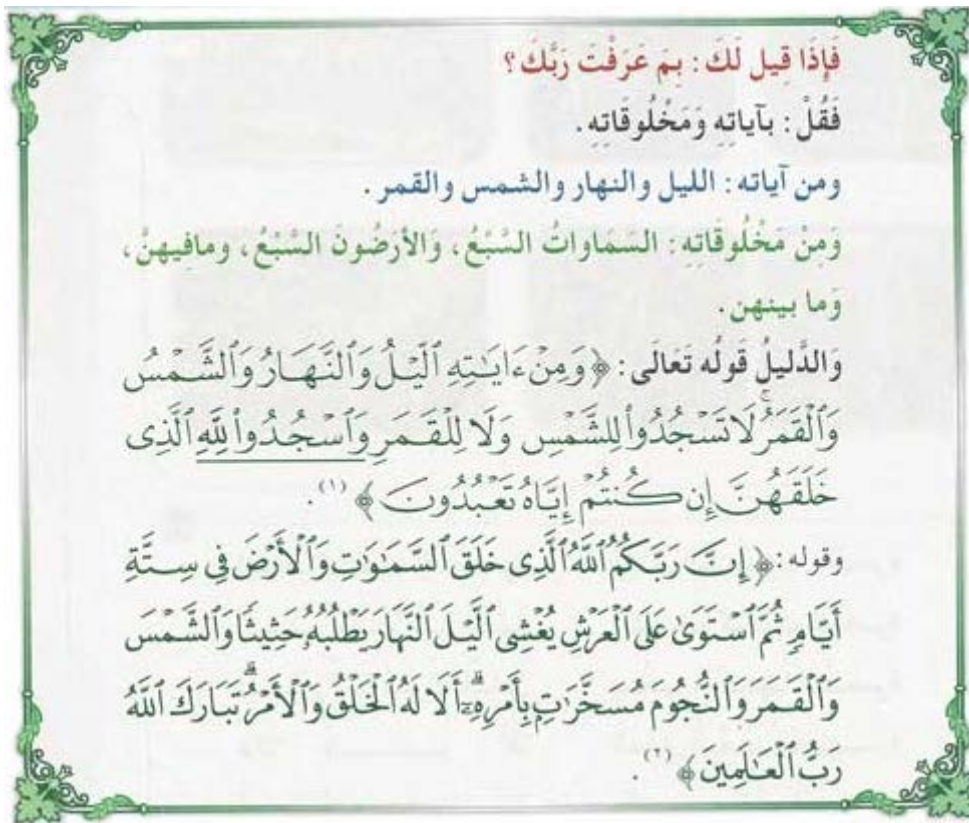 فَإِذَا قِيل لَكَ : بِمَ عَرَفْتَ رَبَّكَ ؟
فَقُلْ : بآياتِه وَمَخْلُوقَاتِه .
ومن آياته : الليل والنهار والشمس والقمر .
وَمِنْ مَخْلُوقَاتِه : السَّمَاوَاتُ السَّبْعُ ، وَالأرَضُونَ السَّبْعُ ، ومافِيهنَّ ،
وَما بينهن .
وَالدَّليلُ قَولُه تَعَالَى : ﴿ وَمِنْ ءَايَٰتِهِ ٱلَّيْلُ وَٱلنَّهَارُ وَٱلشَّمْسُ
وَٱلْقَمَرُ ۚ لَا تَسْجُدُوا۟ لِلشَّمْسِ وَلَا لِلْقَمَرِ وَٱسْجُدُوا۟ لِلَّهِ ٱلَّذِى
خَلَقَهُنَّ إِن كُنتُمْ إِيَّاهُ تَعْبُدُونَ ﴾ (١) .
وقوله : ﴿ إِنَّ رَبَّكُمُ ٱللَّهُ ٱلَّذِى خَلَقَ ٱلسَّمَٰوَٰتِ وَٱلْأَرْضَ فِى سِتَّةِ
أَيَّامٍ ثُمَّ ٱسْتَوَىٰ عَلَى ٱلْعَرْشِ يُغْشِى ٱلَّيْلَ ٱلنَّهَارَ يَطْلُبُهُۥ حَثِيثًا وَٱلشَّمْسَ
وَٱلْقَمَرَ وَٱلنُّجُومَ مُسَخَّرَٰتٍۭ بِأَمْرِهِۦٓ ۗ أَلَا لَهُ ٱلْخَلْقُ وَٱلْأَمْرُ ۗ تَبَارَكَ ٱللَّهُ
رَبُّ ٱلْعَٰلَمِينَ ﴾ (٢) .